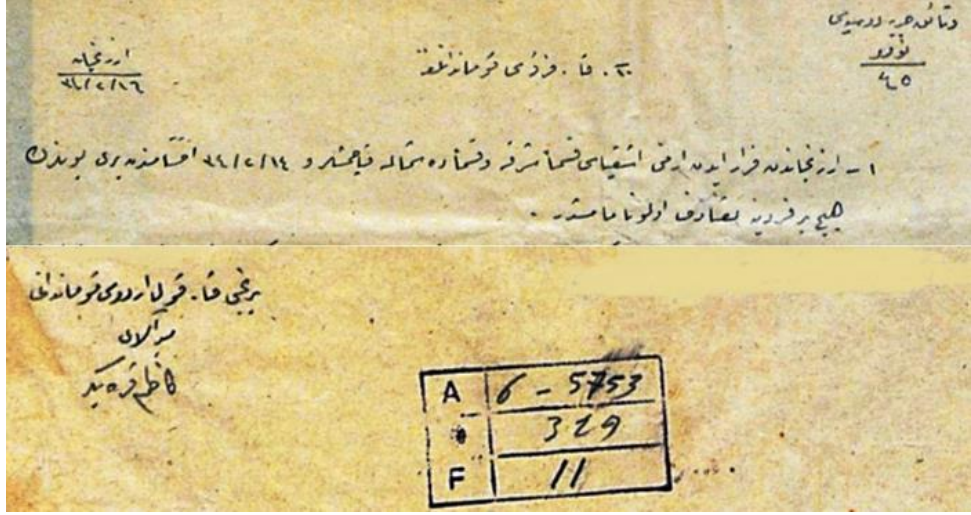 وثائق حربيه دوسيه‌سى
نومرو
٤٥
ارزنجان
٣٤/٢/١٦
٣. قا. فردى قوماندانلغنه
١- ارزنجاندن فرار ايدن ارمنى اشقياسى قسماً شرقه وقسماً ده شماله قاچمشلر و ٣٤/٢/١٤ اقشامندن برى بونلرك
هيچ بر فردينه تصادف اولونامامشدر.
برنجى قا. قول اردوى قوماندانى
ميرآلاى
كاظم قره بكر
A 6 - 5753
319
F 11